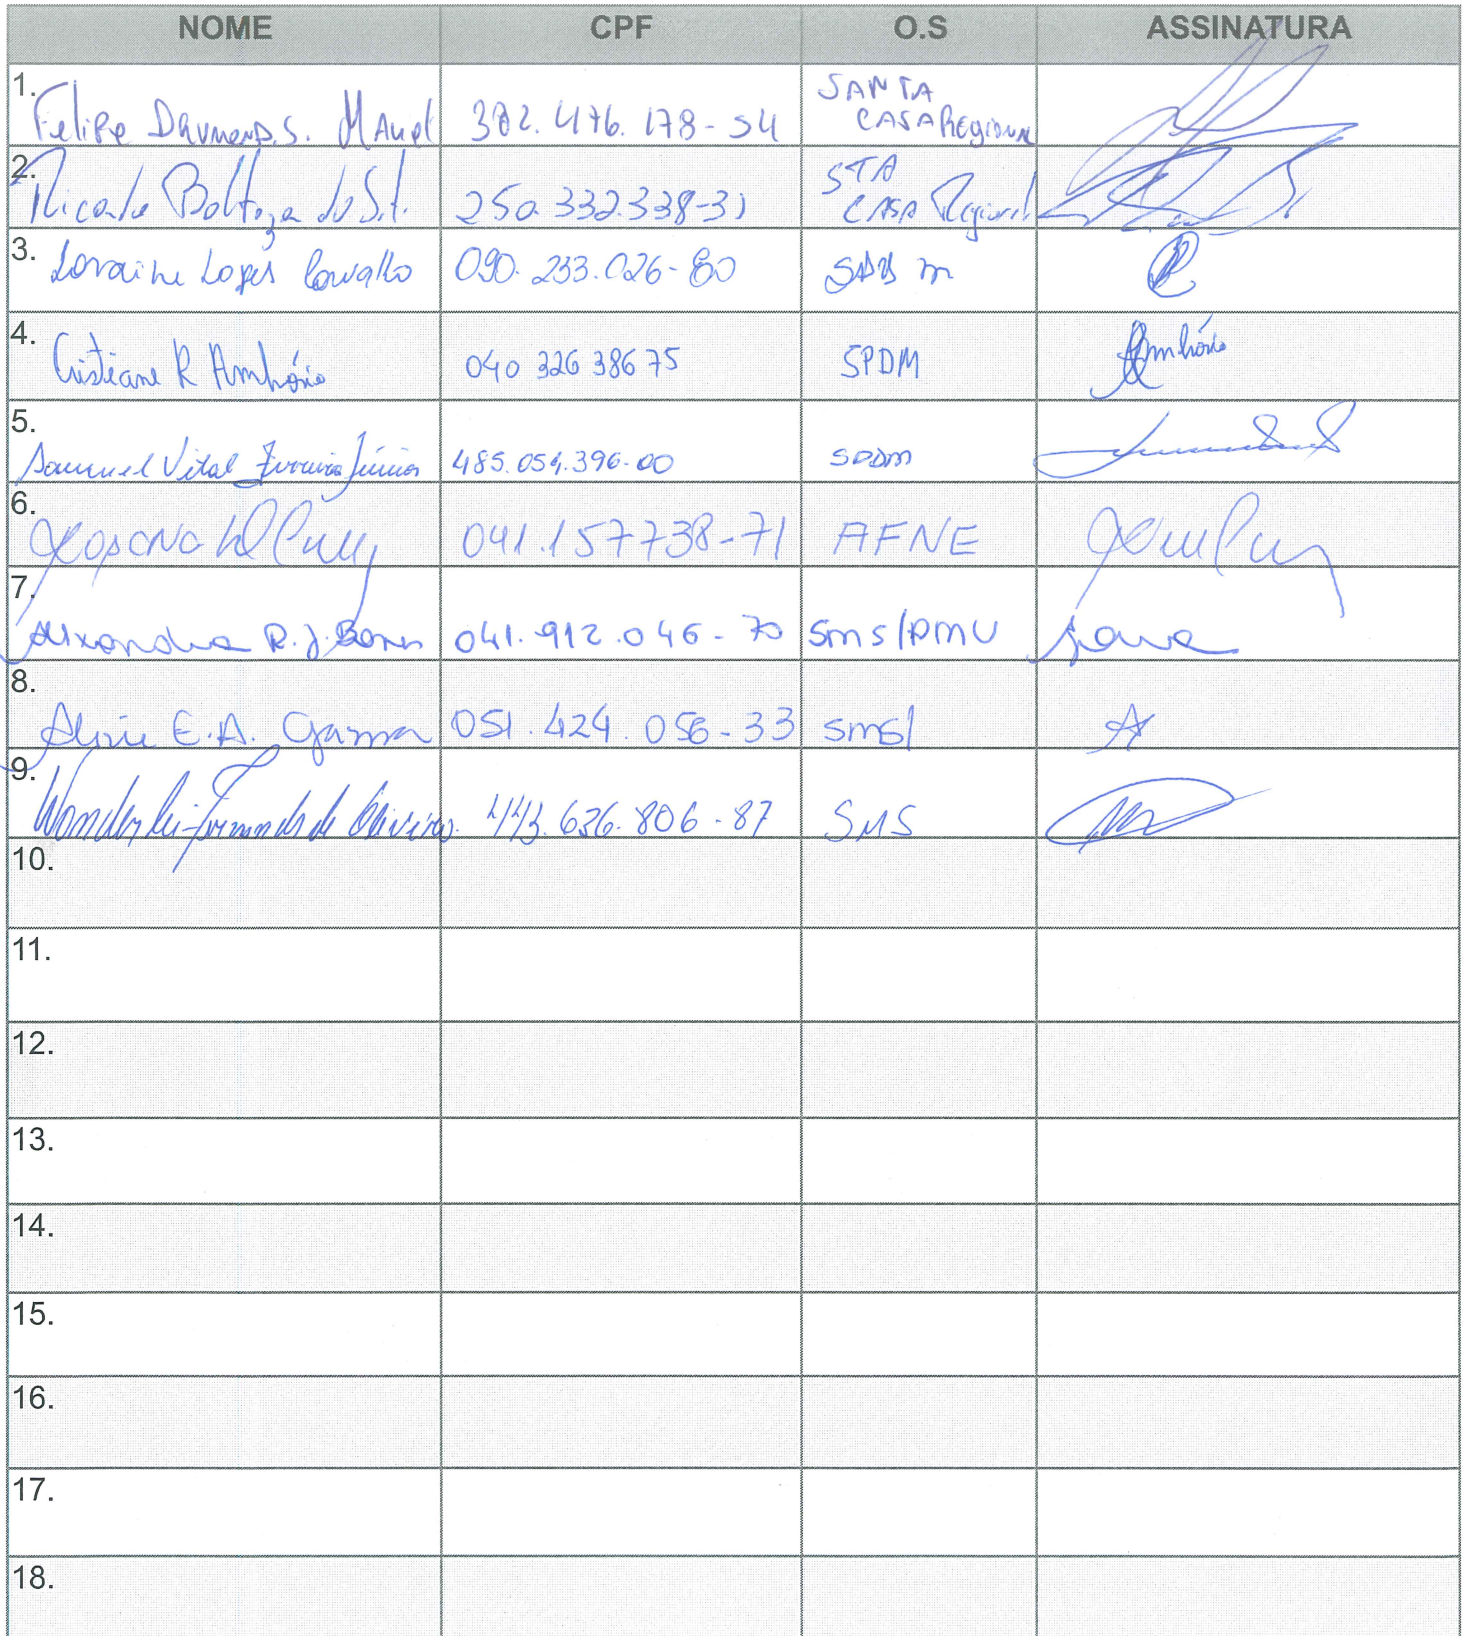 NOME CPF O.S ASSINATURA
1. Felipe Drumond S. 382.476.178-54 SANTA
CASA Regional
2. Ricardo do 250.332.338-31 STA
CASA Regional
3. Loraine Lopes Carvalho 090.233.026-80 SPDM
4. Cristiane R Ambrósio 040 326 386 75 SPDM Ambrósio
5. Samuel Vital Ferreira Júnior 485.054.396-00 SPDM
6. 041.157738-71 AFNE
7. Alexandra R. J. 041.912.046-70 SMS/PMU
8. Aline E. A. Gama 051.424.056-33 SMS/
9. Wanderlei Fernandes de Oliveira 443.636.806-87 SMS
10.
11.
12.
13.
14.
15.
16.
17.
18.